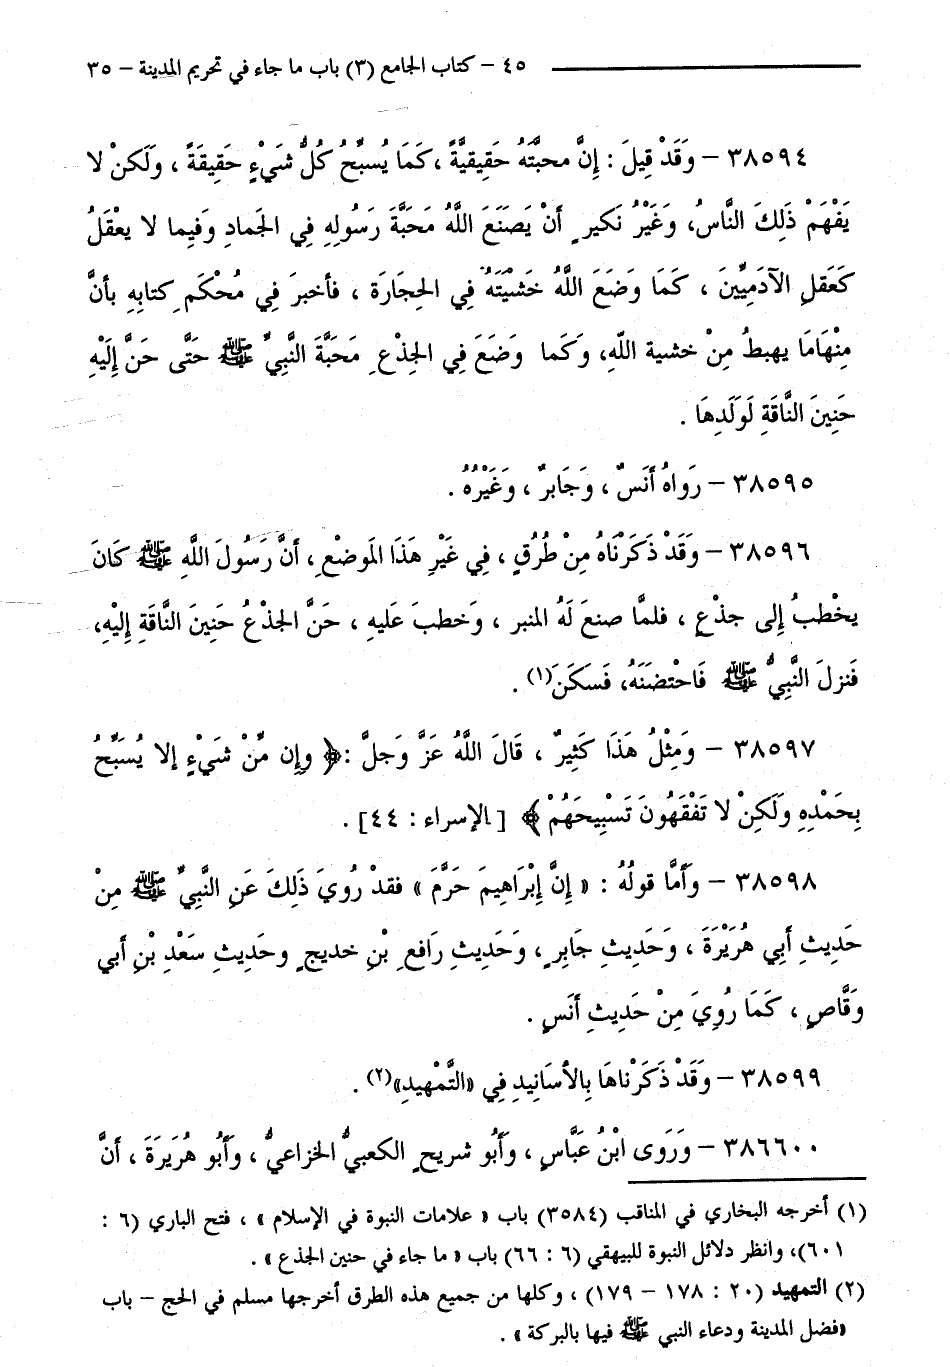 ٤٥ – كتاب الجامع (٣) باب ما جاء في تحريم المدينة – ٣٥
٣٨٥٩٤ – وَقَدْ قِيلَ : إِنَّ محبَّتَهُ حَقِيقيَّةً ،كَمَا يُسبِّحُ كُلُّ شَيْءٍ حَقِيقَةً ، وَلَكنْ لا
يَفْهَمْ ذَلِكَ النَّاسُ، وَغَيْرُ نَكيرٍ أَنْ يَصنَعَ اللَّهُ مَحَبَّةَ رَسُولِهِ فِي الجَمادِ وَفَيِما لا يعْقَلُ
كَعَقلِ الآدَميِّينَ ، كَمَا وَضَعَ اللَّهُ خَشْيَتَهُ فِي الحِجَارَة ، فأخبرَ فِي مُحْكَمِ كتابِهِ بأنَّ
مِنْهَامَا يهبطُ مِنْ خشية اللهِ، وَكَما وَضَعَ فِي الجذْعِ مَحَبَّةَ النَّبِيِّ ﷺ حَتَّى حَنَّ إِلَيْهِ
حَنِينَ النَّاقَةِ لَوَلَدِهَا .
٣٨٥٩٥ – رَواهُ أَنَسٌ ، وَجَابرٌ ، وَغَيْرُهُ .
٣٨٥٩٦ – وَقَدْ ذَكَرْنَاهُ مِنْ طُرُقٍ ، فِي غَيْرِ هَذَا المَوضْعِ ، أَنَّ رَسُولَ اللَّهِ ﷺ كَانَ
يخْطبُ إِلى جذْعٍ ، فلمَّا صنعَ لَهُ المنبر ، وَخطبَ عَليهِ ، حَنَّ الجذْعُ حَنِينَ النَّاقَةِ إِليْهِ،
فَنزلَ النَّبِيُّ ﷺ فَاحْتضَنَهُ، فَسكَنَ(١) .
٣٨٥٩٧ – وَمِثْلُ هَذَا كَثِيرٌ ، قَالَ اللَّهُ عَزَّ وَجلَّ :﴿ وإِن مِّنْ شَيْءٍ إلا يُسَبِّحُ
بِحَمْدِهِ وَلَكِنْ لا تَفْقَهُونَ تَسْبِيحَهُمْ ﴾ [ الإسراء : ٤٤] .
٣٨٥٩٨ – وأَمَّا قولُهُ : « إِنَّ إِبْرَاهِيمَ حَرَّمَ » فقدْ رُويَ ذَلِكَ عَنِ النَّبِيِّ ﷺ مِنْ
حَديثِ أَبِي هُرَيْرَةَ ، وَحَديثِ جَابِرٍ، وَحَديثِ رَافعِ بْنِ خديجٍ وحَديثِ سَعْدِ بْنِ أَبي
وَقَّاصٍ ، كَمَا رُوِيَ مِنْ حَديثِ أنَسٍ .
٣٨٥٩٩ – وَقَدْ ذَكَرْناهَا بِالأَسَانِيدِ فِي «التَّمْهيدِ»(٢) .
٣٨٦٦٠٠ – وَرَوَى ابْنُ عَبَّاسٍ ، وَأَبُو شريحٍ الكعبيُّ الخزاعيُّ ، وَأَبُو هُرَيَرَةَ ، أنَّ
(١) أخرجه البخاري في المناقب (٣٥٨٤) باب « علامات النبوة في الإسلام » ، فتح الباري (٦ :
٦٠١)، وانظر دلائل النبوة للبيهقي (٦ : ٦٦) باب « ما جاء في حنين الجذع » .
(٢) التمهيد (٢٠ : ١٧٨ – ١٧٩) ، وكلها من جميع هذه الطرق أخرجها مسلم في الحج – باب
«فضل المدينة ودعاء النبي ﷺ فيها بالبركة » .